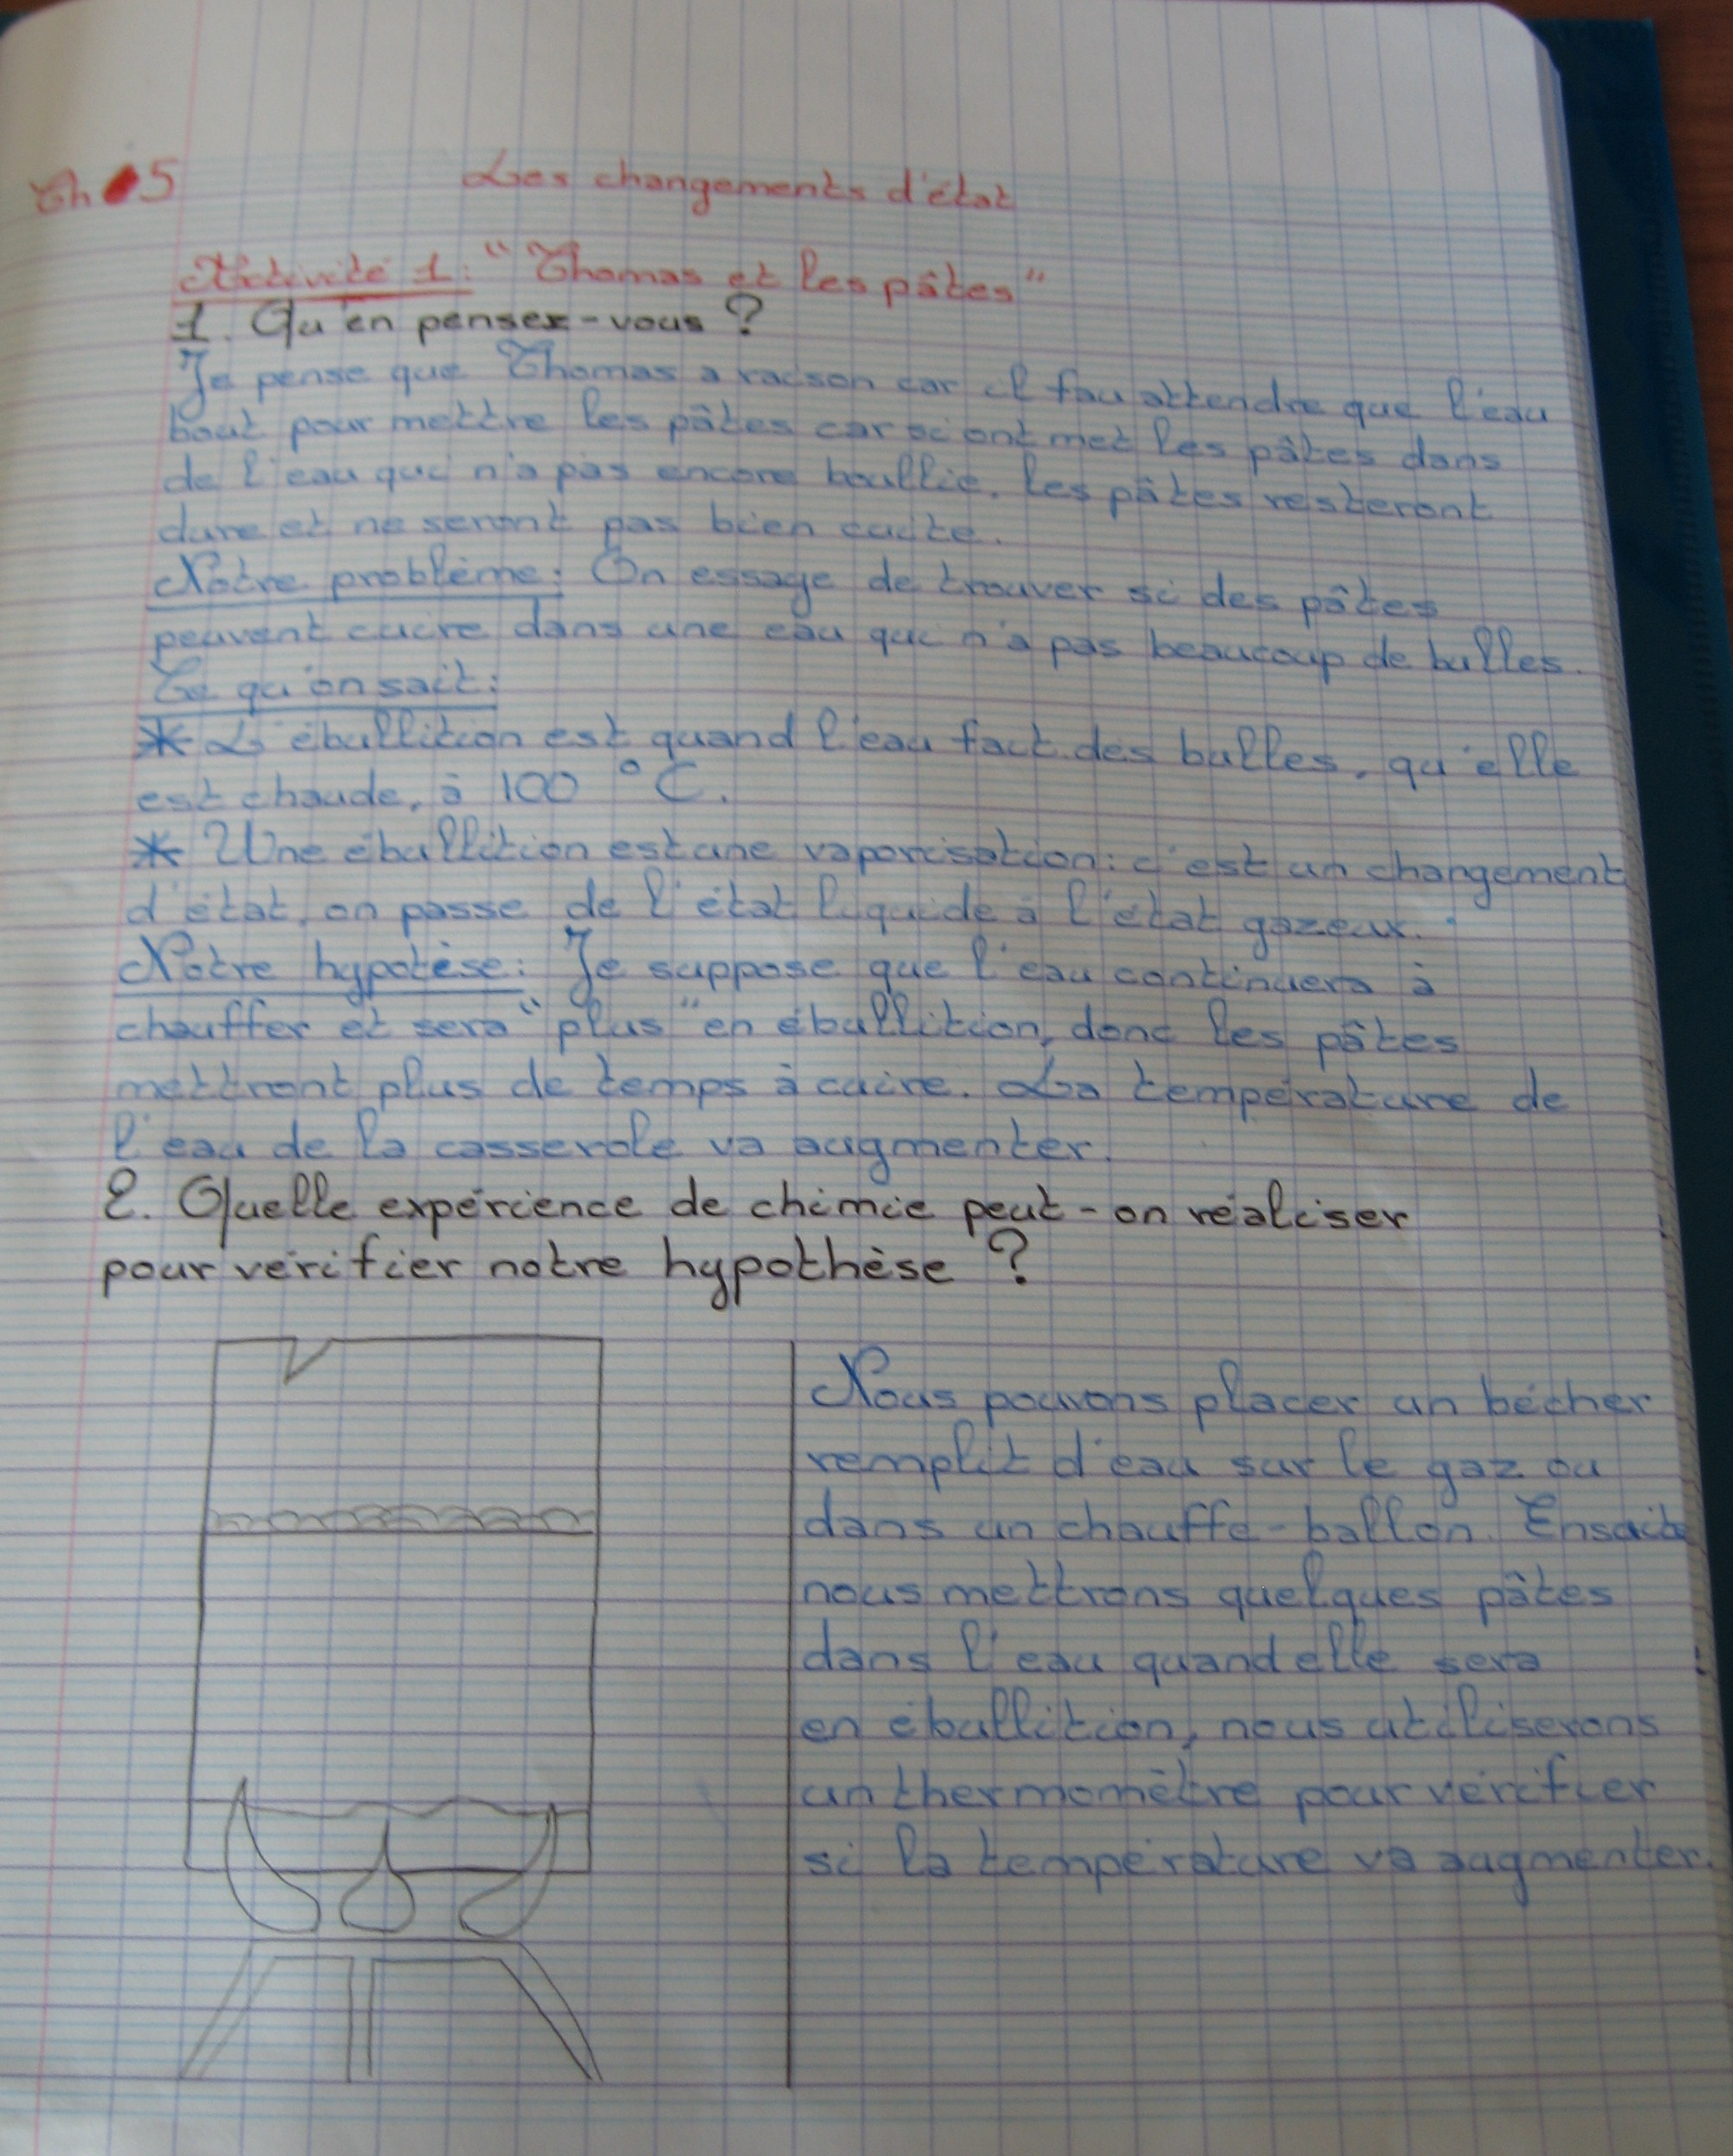 Ch 5
Les changements d'état
Activité 1: "Thomas et les pâtes"
1. Qu'en pensez-vous ?
Je pense que Thomas a raison car il fau attendre que l'eau
bout pour mettre les pâtes car si ont met les pâtes dans
de l'eau qui n'a pas encore boullie, les pâtes resteront
dure et ne seront pas bien cuite.
Notre problème: On essaye de trouver si des pâtes
peuvent cuire dans une eau qui n'a pas beaucoup de bulles.
Ce qu'on sait:
* L'ébullition est quand l'eau fait des bulles, qu'elle
est chaude, à 100 °C.
* Une ébullition est une vaporisation: c'est un changement
d'état, on passe de l'état liquide à l'état gazeux.
Notre hypotèse: Je suppose que l'eau continuera à
chauffer et sera "plus" en ébullition, donc les pâtes
mettront plus de temps à cuire. La température de
l'eau de la casserole va augmenter.
2. Quelle expérience de chimie peut-on réaliser
pour vérifier notre hypothèse ?
Nous pouvons placer un bécher
remplit d'eau sur le gaz ou
dans un chauffe-ballon. Ensuite
nous mettrons quelques pâtes
dans l'eau quand elle sera
en ébullition, nous utiliserons
un thermomètre pour vérifier
si la température va augmenter.